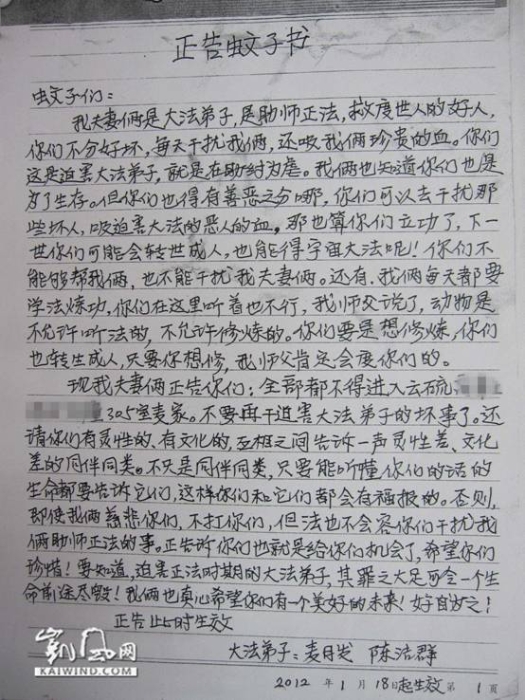 正告蚊子书
蚊子们：
我夫妻俩是大法弟子，是助师正法，救度世人的好人，
你们不分好坏，每天干扰我俩，还吸我俩珍贵的血。你们
这是迫害大法弟子，就是在助纣为虐。我俩也知道你们也是
为了生存。但你们也得有善恶之分哪，你们可以去干扰那
些坏人，吸迫害大法的恶人的血。那也算你们立功了，下一
世你们可能会转世成人，也能得宇宙大法呢！你们不
能够帮我俩，也不能干扰我夫妻俩。还有，我俩每天都要
学法炼功，你们在这里听着也不行，我师父说了，动物是
不允许听法的，不允许修炼的。你们要是想修炼，你们
也转生成人，只要你想修，我师父肯定会度你们的。
现我夫妻俩正告你们：全部都不得进入云硫
305室麦家。不要再干迫害大法弟子的坏事了。还
请你们有灵性的、有文化的，互相之间告诉一声灵性差、文化
差的同伴同类。不只是同伴同类，只要能听懂你们的话的
生命都要告诉它们，这样你们和它们都会有福报的。否则，
即使我俩慈悲你们，不打你们，但法也不会容你们干扰我
俩助师正法的事。正告你们也就是给你们机会了，希望你们
珍惜！要知道，迫害正法时期的大法弟子，其罪之大足可令一个生
命前途尽毁！我俩也真心希望你们有一个美好的未来！好自为之！
正告此时生效
大法弟子：麦日发 陈洁群
2012 年 1 月 18日起生效 第 1 页
凯风网
KAIWIND.COM